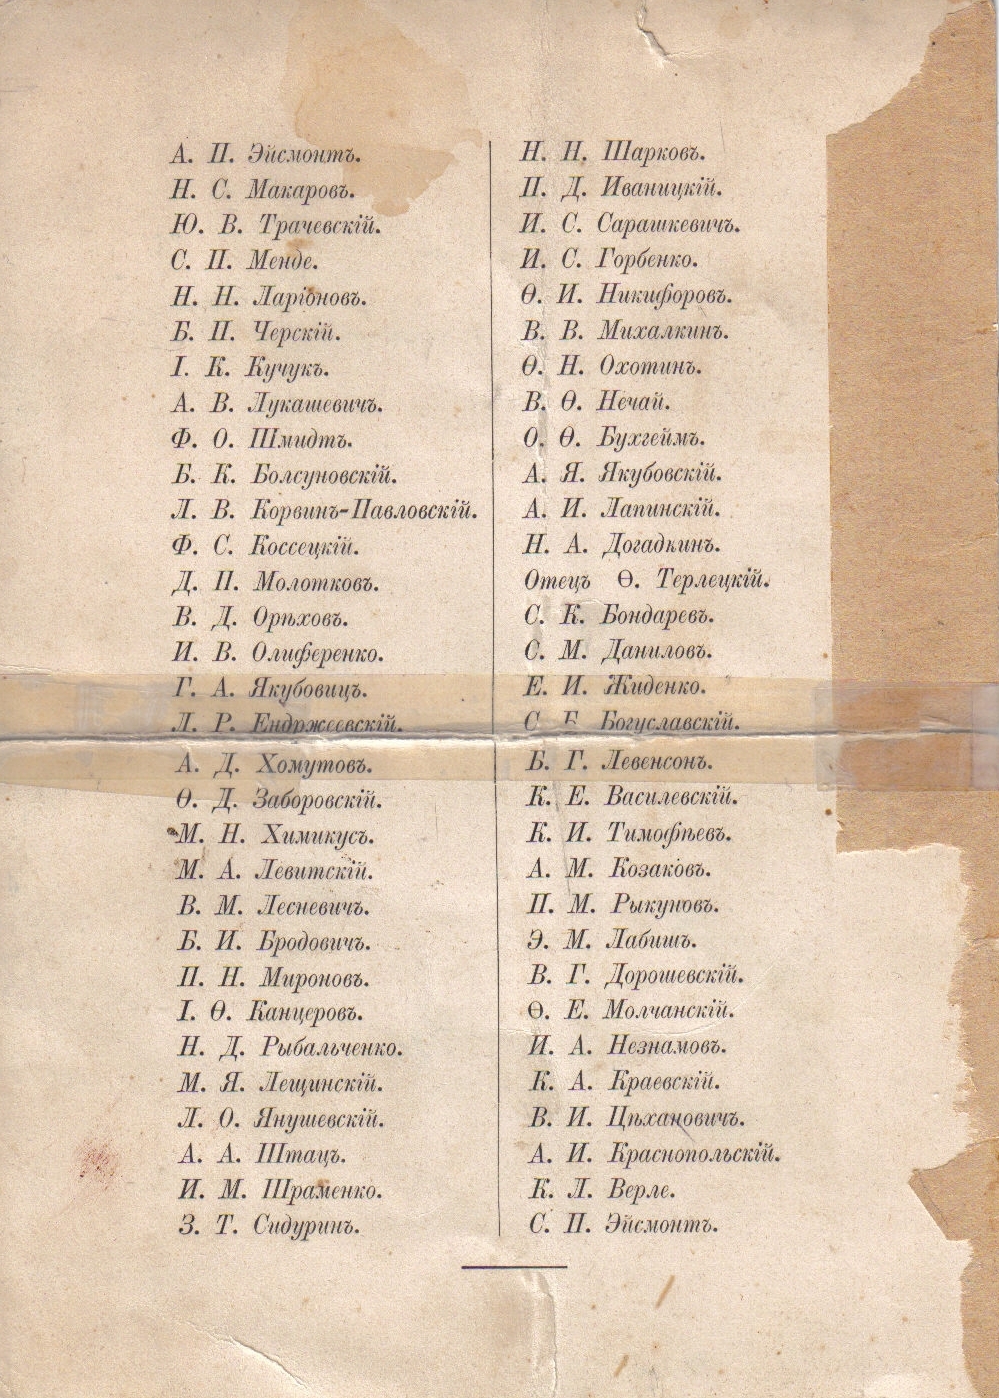 А. П. Эйсмонтъ.
Н. С. Макаровъ.
Ю. В. Трачевскій.
С. П. Менде.
Н. Н. Ларіоновъ.
Б. П. Черскій.
І. К. Кучукъ.
А. В. Лукашевичъ.
Ф. О. Шмидтъ.
Б. К. Болсуновскій.
Л. В. Корвинъ-Павловскій.
Ф. С. Коссецкій.
Д. П. Молотковъ.
В. Д. Орѣховъ.
И. В. Олиференко.
Г. А. Якубовицъ.
Л. Р. Ендржеевскій.
А. Д. Хомутовъ.
Ѳ. Д. Заборовскій.
М. Н. Химикусъ.
М. А. Левитскій.
В. М. Лесневичъ.
Б. И. Бродовичъ.
П. Н. Мироновъ.
І. Ѳ. Канцеровъ.
Н. Д. Рыбальченко.
М. Я. Лещинскій.
Л. О. Янушевскій.
А. А. Штацъ.
И. М. Шраменко.
З. Т. Сидуринъ.
Н. Н. Шарковъ.
П. Д. Иваницкій.
И. С. Сарашкевичъ.
И. С. Горбенко.
Ѳ. И. Никифоровъ.
В. В. Михалкинъ.
Ѳ. Н. Охотинъ.
В. Ѳ. Нечай.
О. Ѳ. Бухгеймъ.
А. Я. Якубовскій.
А. И. Лапинскій.
Н. А. Догадкинъ.
Отецъ Ѳ. Терлецкій.
С. К. Бондаревъ.
С. М. Даниловъ.
Е. И. Жиденко.
С. Богуславскій.
Б. Г. Левенсонъ.
К. Е. Василевскій.
К. И. Тимофѣевъ.
А. М. Козаковъ.
П. М. Рыкуновъ.
Э. М. Лабишъ.
В. Г. Дорошевскій.
Ѳ. Е. Молчанскій.
И. А. Незнамовъ.
К. А. Краевскій.
В. И. Цѣхановичъ.
А. И. Краснопольскій.
К. Л. Верле.
С. П. Эйсмонтъ.